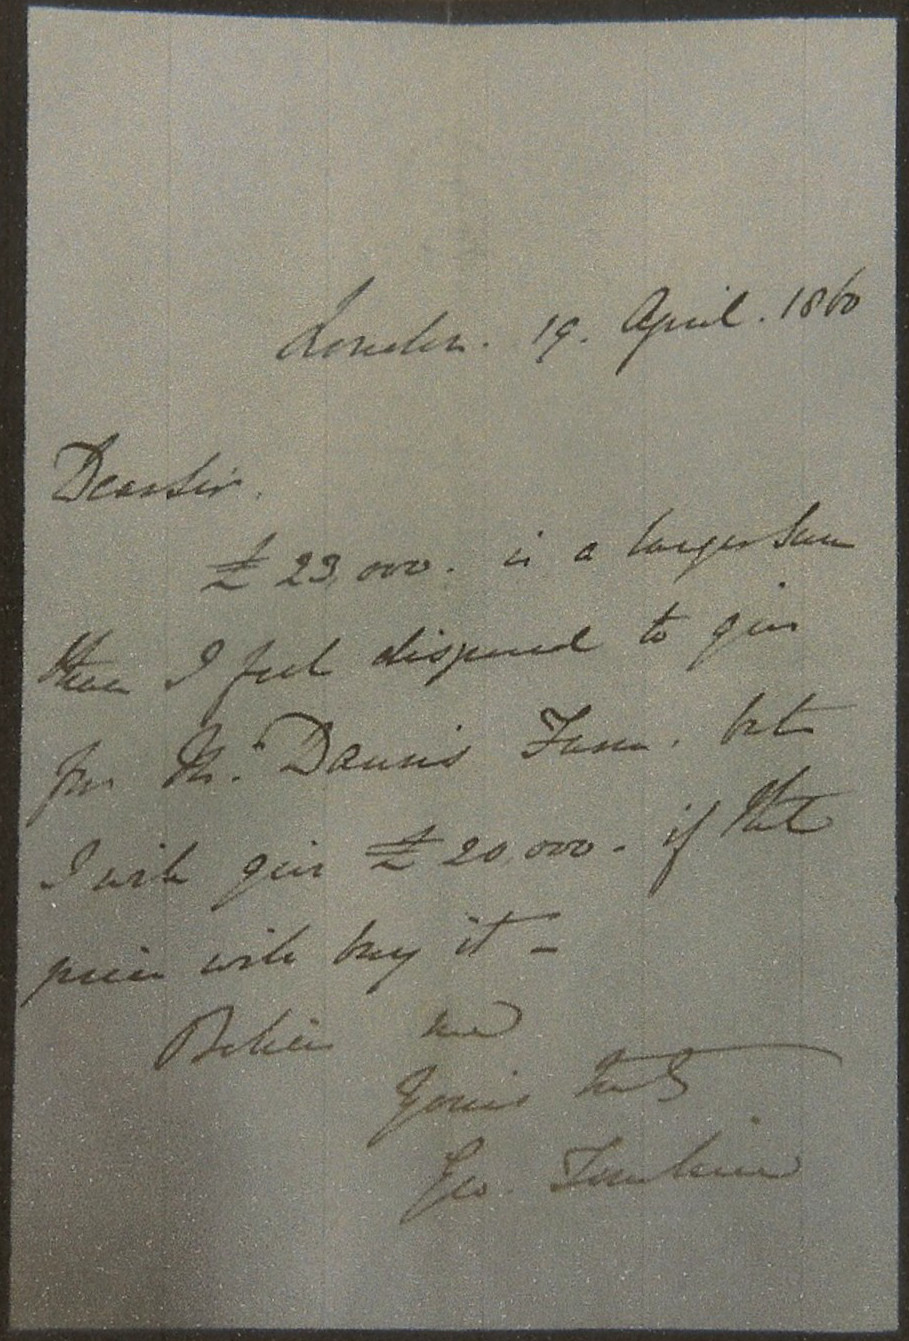 London. 19. April. 1860
Dear Sir.
£23,000. is a larger Sum
than I feel disposed to give
for Mr. Dannis Farm. but
I will give £20,000 - if that
price will buy it -
Believe me
Yours truly
Geo.